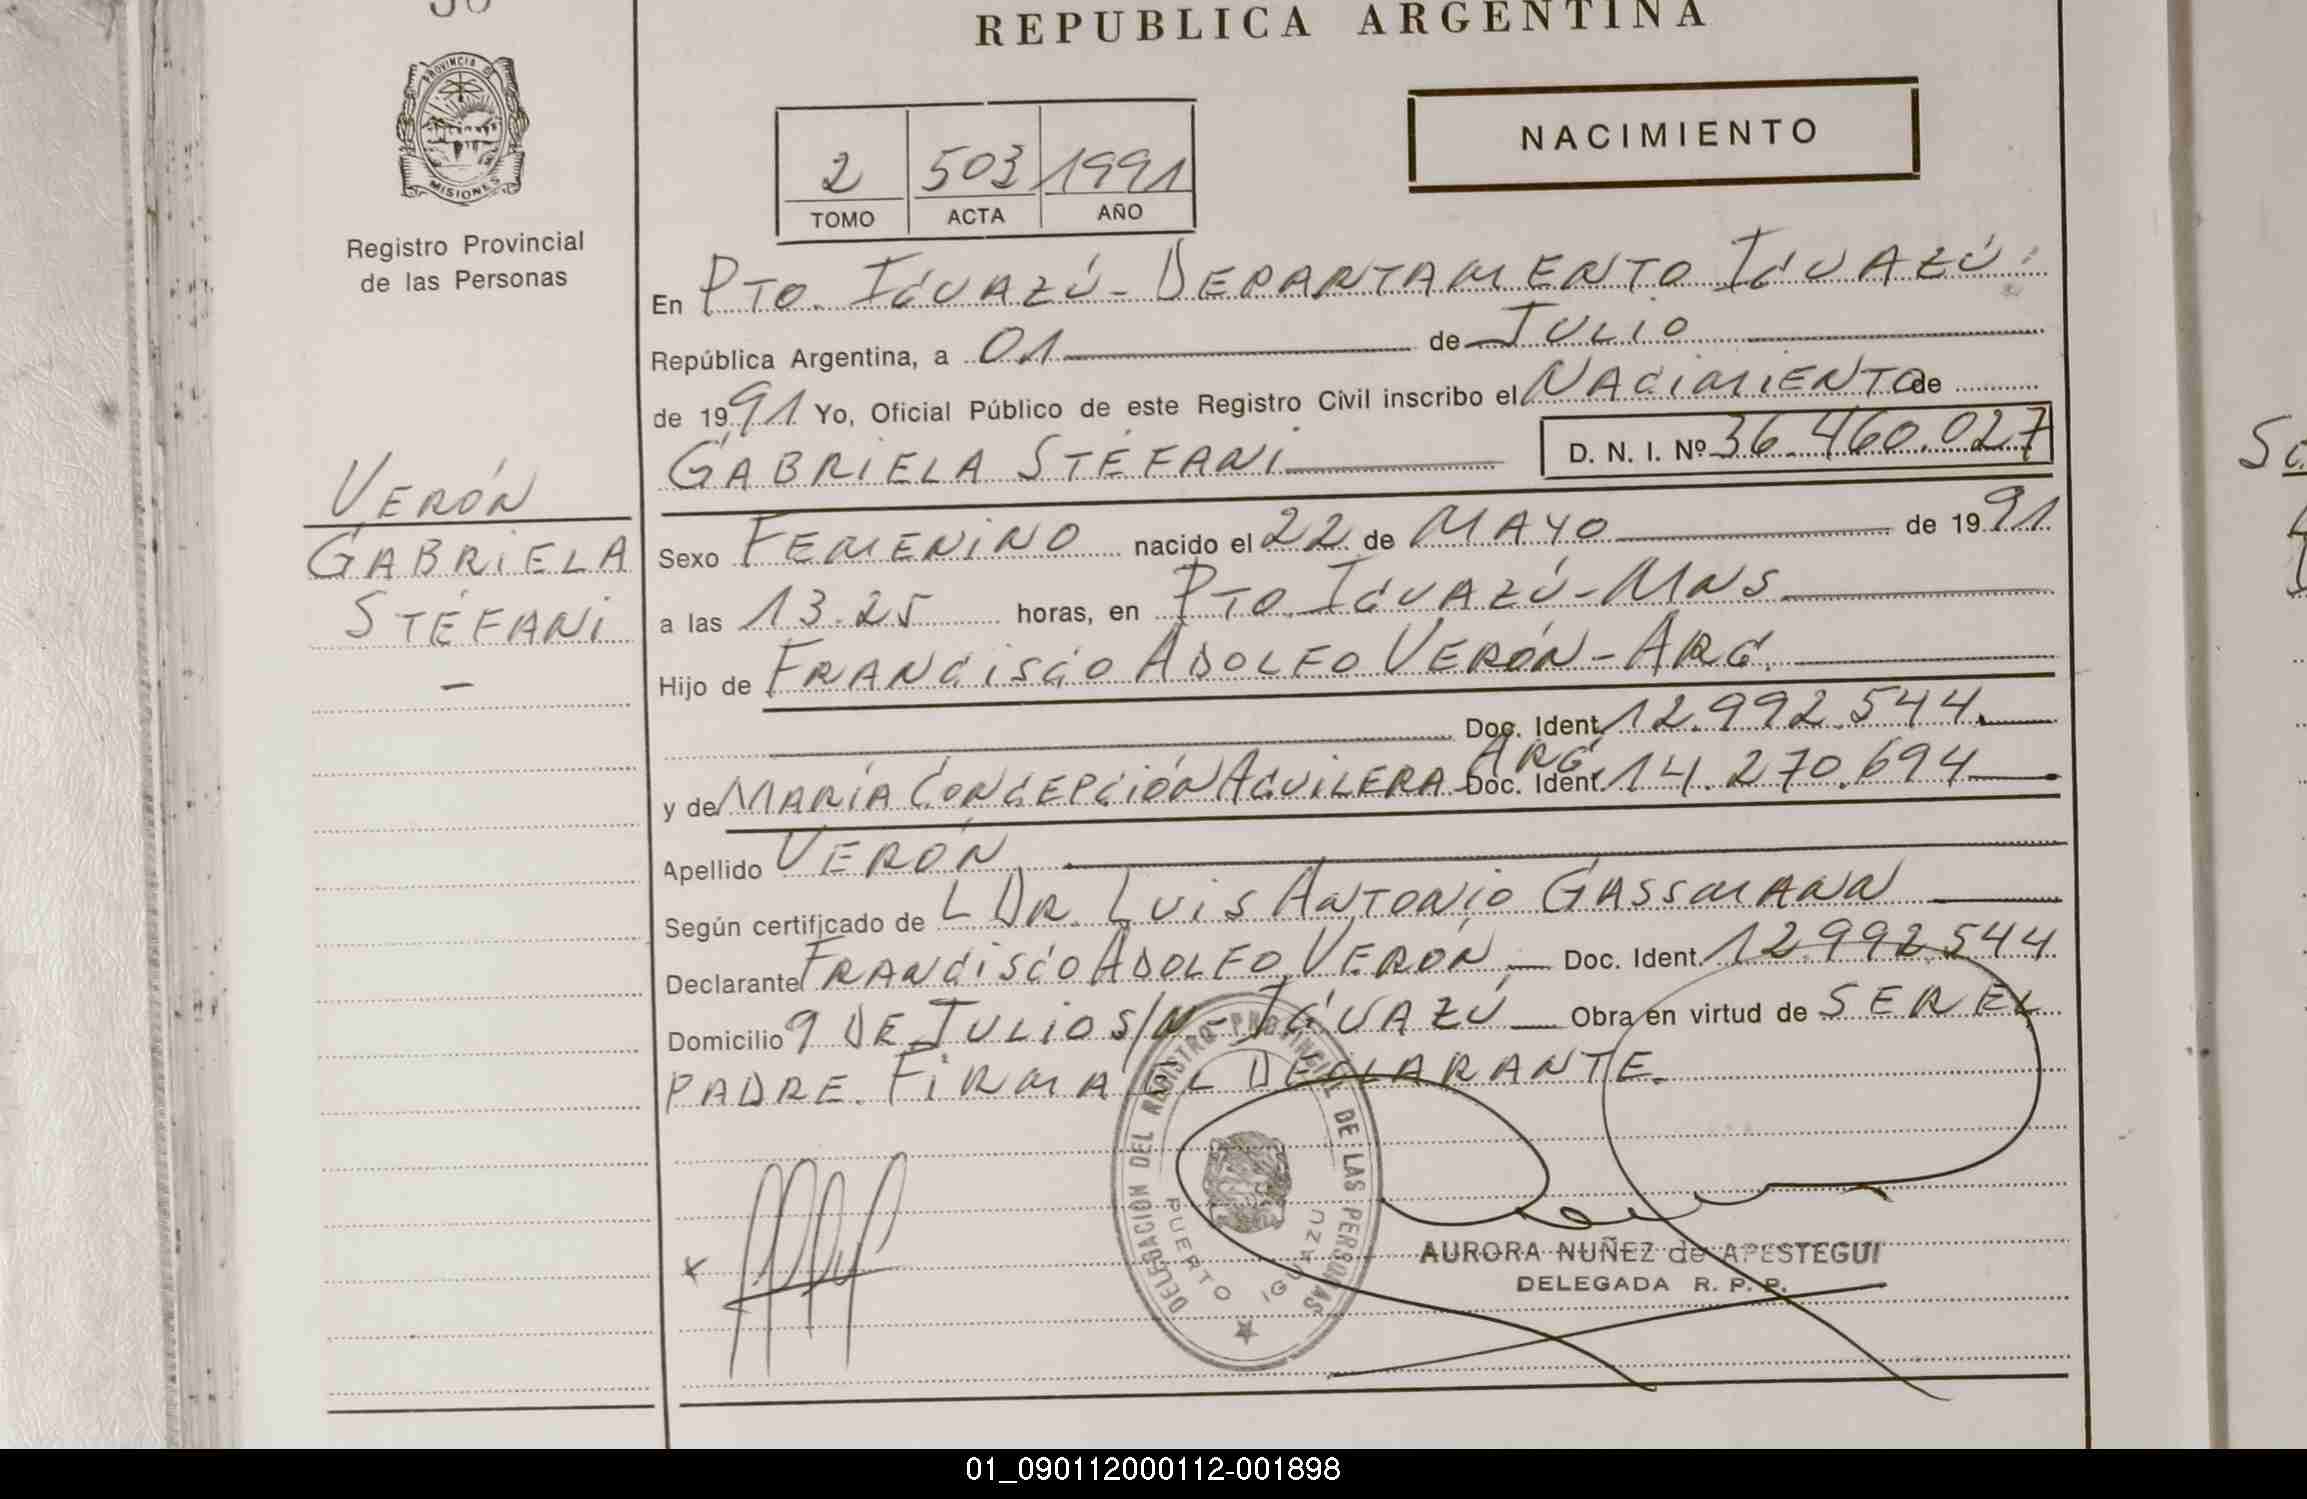 REPUBLICA ARGENTINA
PROVINCIA DE
MISIONES
Registro Provincial
de las Personas
NACIMIENTO
2 503 1991
TOMO ACTA AÑO
En PTO. IGUAZÚ - DEPARTAMENTO IGUAZÚ.
República Argentina, a 01 de JULIO
de 1991 Yo, Oficial Público de este Registro Civil inscribo el NACIMIENTO de
GABRIELA STÉFANI D. N. I. Nº 36.460.027
VERÓN
GABRIELA
STÉFANI
-
Sexo FEMENINO nacido el 22 de MAYO de 1991
a las 13.25 horas, en PTO. IGUAZÚ - MNS
Hijo de FRANCISCO ADOLFO VERÓN - ARG.
Doc. Ident. 12.992.544.
y de MARÍA CONCEPCIÓN AGUILERA - ARG. Doc. Ident. 14.270.694
Apellido VERÓN
Según certificado de L DR. LUIS ANTONIO GASSMANN
Declarante FRANCISCO ADOLFO VERÓN Doc. Ident. 12.992.544
Domicilio 9 DE JULIO S/N - IGUAZÚ Obra en virtud de SER EL
PADRE. FIRMA EL DECLARANTE.
DELEGACION DEL REGISTRO PROVINCIAL DE LAS PERSONAS
PUERTO IGUAZU
X
AURORA NUÑEZ de APESTEGUI
DELEGADA R. P. P.
01_090112000112-001898